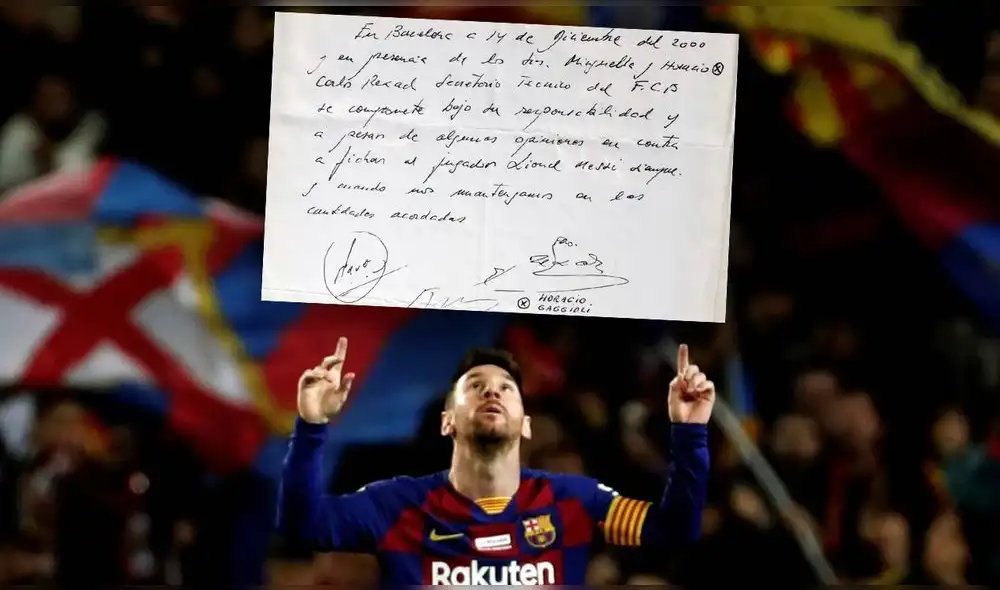 En Barcelona a 14 de Diciembre del 2000
y en presencia de los Srs. Minguella y Horacio
Carlos Rexach Secretario Tecnico del F.C.B
se compromete bajo su responsabilidad y
a pesar de algunas opiniones en contra
a fichar al jugador Lionel Messi siempre
y cuando nos mantengamos en las
cantidades acordadas
HORACIO
GAGGIOLI
Rakuten